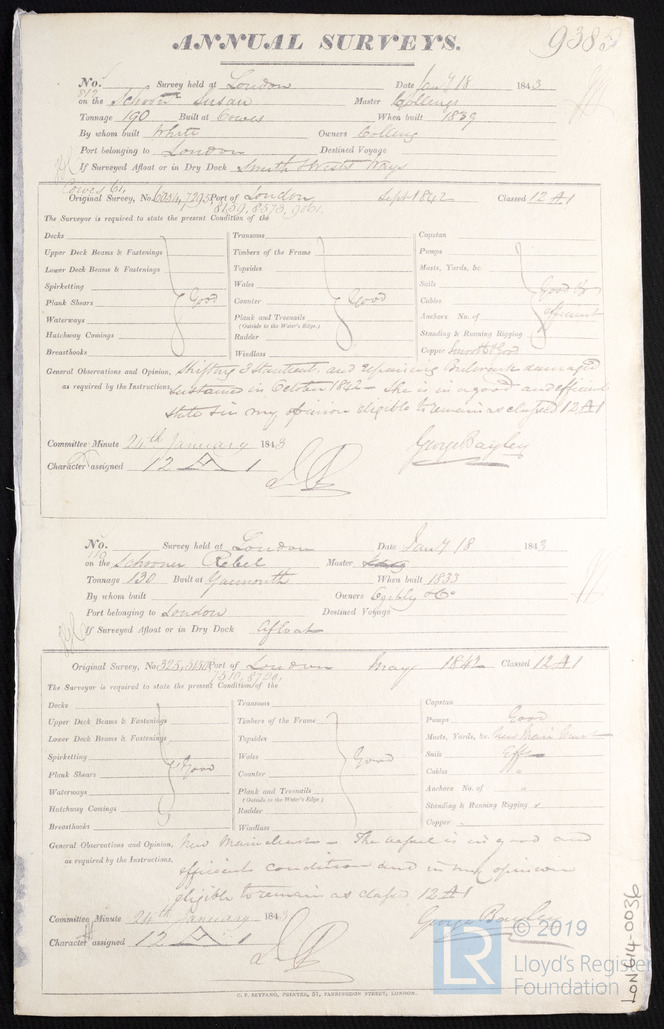 ANNUAL SURVEYS.
No. 812 Survey held at London Date Jany 18 1843
on the Schooner Susan Master Colling
Tonnage 190 Built at Cowes When built 1839
By whom built White Owners Colling
Port belonging to London Destined Voyage
If Surveyed Afloat or in Dry Dock Smith & Wests Ways
Cowes 61.
Original Survey, No. 6054, 7295 Port of London Sept 1842 Classed 12 A 1
8159, 8573, 9061.
The Surveyor is required to state the present Condition of the
Decks Transoms Capstan
Upper Deck Beams & Fastenings Timbers of the Frame Pumps
Lower Deck Beams & Fastenings Topsides Masts, Yards, &c.
Spirketting Wales Sails Good &
Plank Shears Good Counter Good Cables efficient
Waterways Plank and Treenails Anchors No. of
(Outside to the Water's Edge.)
Hatchway Comings Rudder Standing & Running Rigging
Breasthooks Windlass Copper Smooth & Good
General Observations and Opinion, Shifting 3 Stantient and repairing Bulwark damaged
as required by the Instructions, sustained in October 1842 – She is in a good and efficient
state & in my opinion eligible to remain as classed 12 A 1
Committee Minute 24th January 1843 George Bayley
Character assigned 12 A 1
No. 119 Survey held at London Date Jany 18 1843
on the Schooner Rebel Master
Tonnage 130 Built at Yarmouth When built 1833
By whom built Owners & Co
Port belonging to London Destined Voyage
If Surveyed Afloat or in Dry Dock Afloat
Original Survey, No. 325, 5180 Port of London May 1842 Classed 12 A 1
7510, 8720,
The Surveyor is required to state the present Condition of the
Decks Transoms Capstan
Upper Deck Beams & Fastenings Timbers of the Frame Pumps Good
Lower Deck Beams & Fastenings Topsides Masts, Yards, &c. New Main
Spirketting Wales Sails Efft
Plank Shears Good Counter Good Cables "
Waterways Plank and Treenails Anchors No. of "
(Outside to the Water's Edge)
Hatchway Comings Rudder Standing & Running Rigging "
Breasthooks Windlass Copper "
General Observations and Opinion, New Mainmast – The vessel is in good and
as required by the Instructions, efficient condition and in my opinion
eligible to remain as classed 12 A 1
Committee Minute 24th January 1843 George Bayley
Character assigned 12 A 1
C. F. SEYFANG, PRINTER, 57, FARRINGDON STREET, LONDON.
LON614-0036
LR © 2019
Lloyd's Register
Foundation